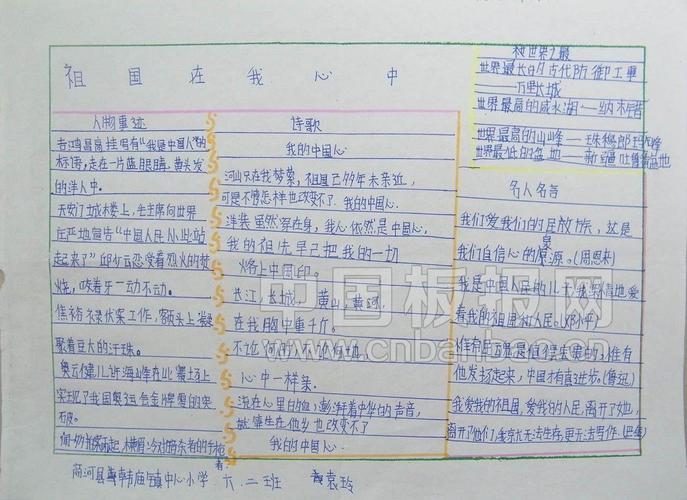 祖国在我心中
人物事迹
吉鸿昌高挂写有“我是中国人”的
标语,走在一片蓝眼睛,黄头发
的洋人中。
天安门城楼上,毛主席向世界
庄严地宣告“中国人民从此站
起来了”邱少云忍受着烈火的焚
烧,咬着牙一动不动。
焦裕禄伏案工作,额头上
聚着豆大的汗珠。
奥运健儿许海峰在比赛场上
实现了我国奥运会金牌零的突
破。
诗歌
我的中国心
河山只在我梦萦,祖国已多年未亲近,
可是不管怎样也改变不了,我的中国心。
洋装虽然穿在身,我心依然是中国心,
我的祖先早已把我的一切
烙上中国印。
长江,长城,黄山,黄河,
在我胸中重千斤。
不论何时,不论何地,
心中一样亲。
流在心里的血,澎湃着中华的声音,
就算生在他乡也改变不了
我的中国心。
世界之最
世界最长的古代防御工事
——万里长城
世界最高的咸水湖——纳木错
世界最高的山峰——珠穆郎玛峰
世界最低的盆地——新疆吐鲁番盆地
名人名言
我们爱我们的民族,这是
我们自信心的泉源。(周恩来)
我是中国人民的儿子,我深情地爱
着我的祖国和人民。(邓小平)
唯有民魂是值得宝贵的,唯有
他发扬起来,中国才有真进步。(鲁迅)
我爱我的祖国,爱我的人民,离开了她,
离开了他们,我就无法生存,更无法写作。(巴金)
庙镇中心小学 六.二班 袁玲
中国板报网
www.cnbanbao.cn